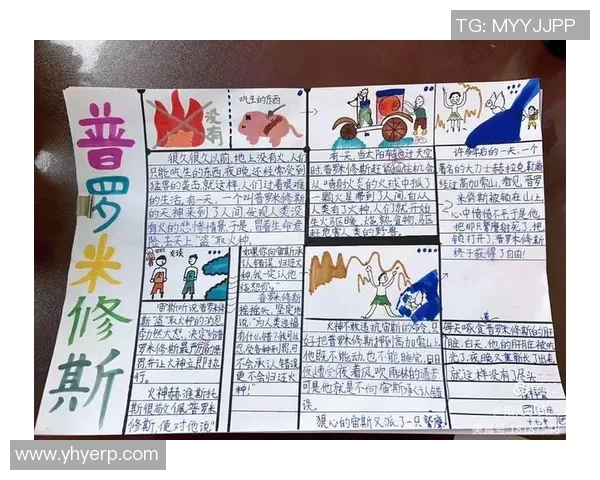 TG: MYYJJPP
普罗米修斯
没有
吃生的东西
很久很久以前,地上没有火,人们
只能吃生的东西,夜晚还经常受到
猛兽的袭击,就这样,人们过着艰难
的生活。有一天,一个叫普罗米修斯
的天神来到了人间,发现人类没
有火的悲惨情景,于是,冒着生命危
险,去天上“盗”取火种。
有一天,当太阳车跑过天空
时,普罗米修斯
从
一颗火星,带到了人间。自从
人类有了火种,人们就开始
生火取暖,烧熟食物,驱
赶危害人类的野兽。
许多年后的一天,一个
著名的大力士赫拉克勒斯
经过高加索山,看见普罗
米修斯被锁在山上,
心中愤愤不平,于是他
他即只鹫鹰射死了,把
锁打开了,普罗米修斯
终于获得了自由!
交谈
宙斯听说普罗米修
斯“盗”取火种的消息,
勃然大怒,决定给普
罗米修斯最严厉的惩
罚,并让火神立即执
行。
火神赫淮斯托
斯很敬佩普罗米
修斯,便对他说:“
如果你向宙斯
承认错误,归还火
种,我一定让他
饶恕你。”
普罗米修斯
摇摇头,坚定地
说:“为人类造福,
有什么错?我可以
忍受各种刑罚,但
不会承认错误,
更不会归还火
种!”
火神不敢违抗宙斯的命令,只
好把普罗米修斯押到高加索山上。
他既不能动,也不能睡觉,日日
夜夜遭受着风吹雨淋的痛苦,
可是他就是不向宙斯承认错
误。
狠心的宙斯又派了一只鹫鹰,
每天啄食普罗米修斯的肝
脏,白天,他的肝脏被吃
光了,夜晚又重新长了出来,
就这样没有了尽头……
www.yhyerp.com